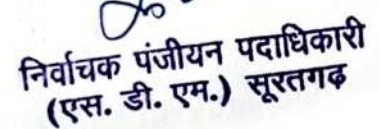 निर्वाचक पंजीयन पदाधिकारी
(एस. डी. एम.) सूरतगढ़